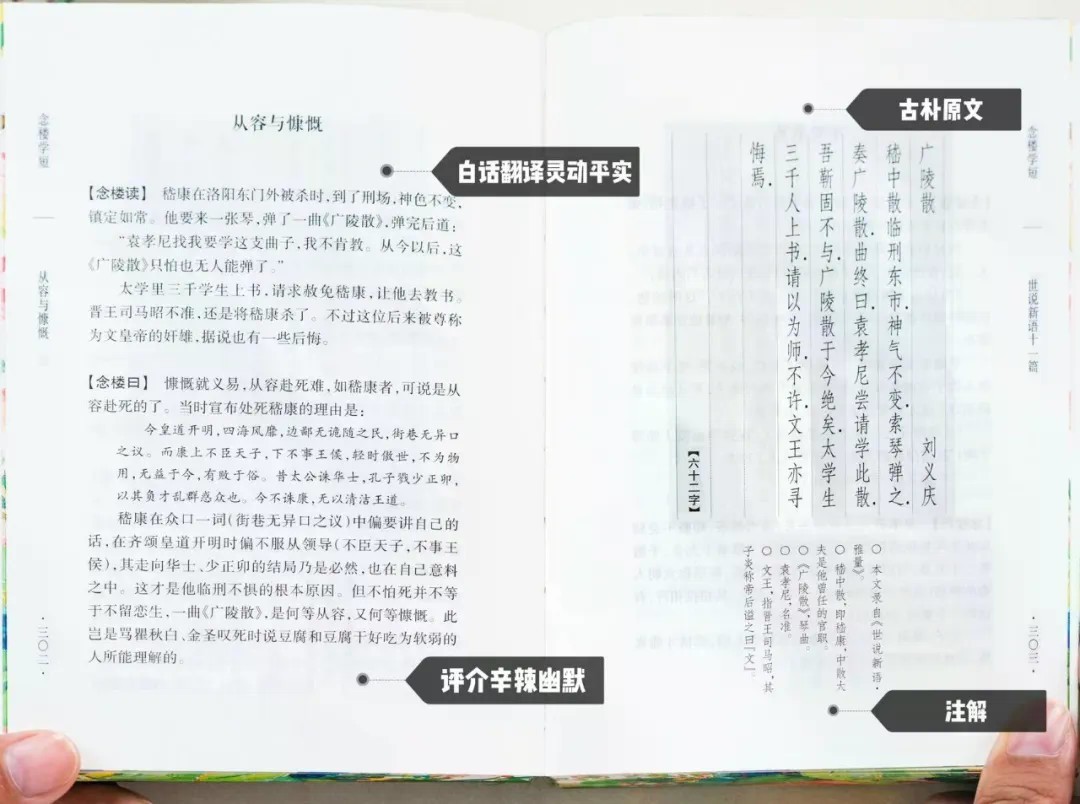 念楼学短
从容与慷慨
从容与慷慨
白话翻译灵动平实
【念楼读】 嵇康在洛阳东门外被杀时,到了刑场,神色不变,
镇定如常。他要来一张琴,弹了一曲《广陵散》,弹完后道:
“袁孝尼找我要学这支曲子,我不肯教。从今以后,这
《广陵散》只怕也无人能弹了。”
太学里三千学生上书,请求赦免嵇康,让他去教书。
晋王司马昭不准,还是将嵇康杀了。不过这位后来被尊称
为文皇帝的奸雄,据说也有一些后悔。
【念楼曰】 慷慨就义易,从容赴死难,如嵇康者,可说是从
容赴死的了。当时宣布处死嵇康的理由是:
今皇道开明,四海风靡,边鄙无诡随之民,街巷无异口
之议。而康上不臣天子,下不事王侯,轻时傲世,不为物
用,无益于今,有败于俗。昔太公诛华士,孔子戮少正卯,
以其负才乱群惑众也。今不诛康,无以清洁王道。
嵇康在众口一词(街巷无异口之议)中偏要讲自己的
话,在齐颂皇道开明时偏不服从领导(不臣天子,不事王
侯),其走向华士、少正卯的结局乃是必然,也在自己意料
之中。这才是他临刑不惧的根本原因。但不怕死并不等
于不留恋生,一曲《广陵散》,是何等从容,又何等慷慨。此
岂是骂瞿秋白、金圣叹死时说豆腐和豆腐干好吃为软弱的
人所能理解的。
评介辛辣幽默
·三〇二·
古朴原文
念楼学短
世说新语十一篇
广陵散 刘义庆
嵇中散临刑东市.神气不变.索琴弹之.
奏广陵散.曲终曰.袁孝尼尝请学此散.
吾靳固不与.广陵散于今绝矣.太学生
三千人上书.请以为师.不许.文王亦寻
悔焉.
【六十二字】
○ 本文录自《世说新语·
雅量》。
○ 嵇中散,即嵇康,中散大
夫是他曾任的官职。
○ 《广陵散》,琴曲。
○ 袁孝尼,名准。
○ 文王,指晋王司马昭,其
子炎称帝后谥之曰“文”。
注解
·三〇三·